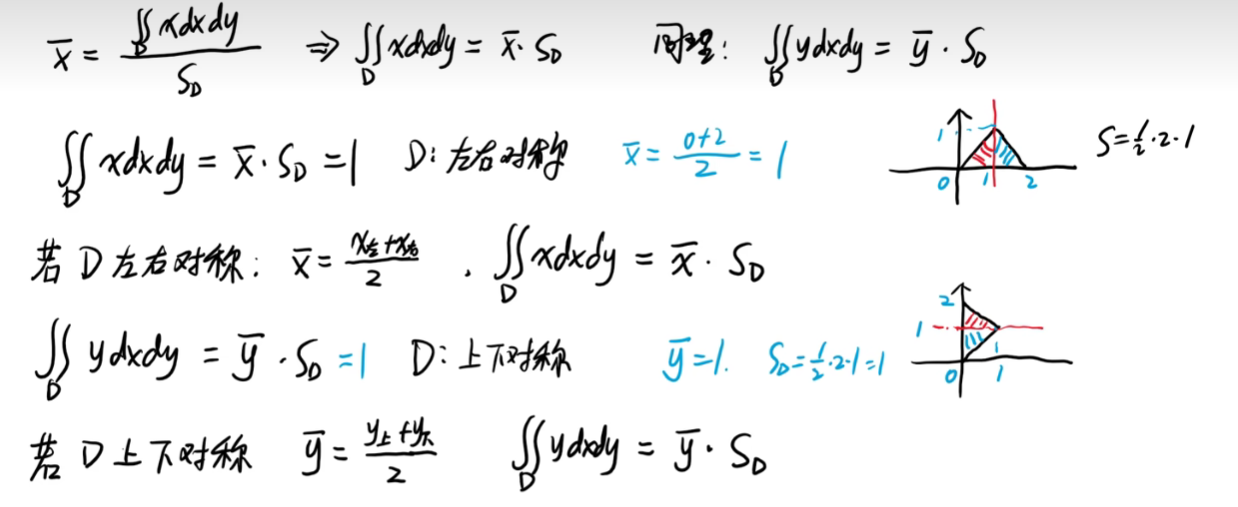 x̄ = ∬_D xdxdy / S_D ⇒ ∬_D xdxdy = x̄ · S_D 同理: ∬_D ydxdy = ȳ · S_D
∬_D xdxdy = x̄ · S_D = 1 D: 左右对称 x̄ = (0+2)/2 = 1 1 0 1 2 S = 1/2 · 2 · 1
若 D 左右对称: x̄ = (x左 + x右)/2 , ∬_D xdxdy = x̄ · S_D
∬_D ydxdy = ȳ · S_D = 1 D: 上下对称 ȳ = 1. S_D = 1/2 · 2 · 1 = 1 2 1 0 1 1
若 D 上下对称 ȳ = (y上 + y下)/2 ∬_D ydxdy = ȳ · S_D